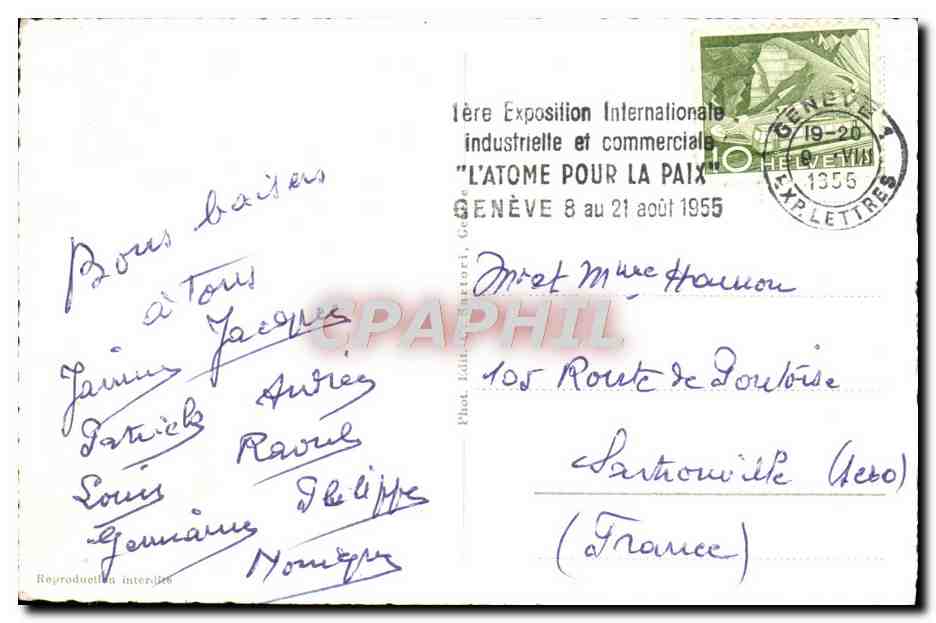 1ère Exposition Internationale
industrielle et commerciale
"L'ATOME POUR LA PAIX"
GENÈVE 8 au 21 août 1955
GENÈVE 1
19-20
9 -VIII
1955
EXP. LETTRES
10 HELVETIA
Bons baisers
à Tous
Jacques
Janine
Andrée
Patrick
Raoul
Louis
Philippe
Germaine
Monique
Reproduction interdite
Phot. Edit. Sartori, Genève
CPAPHIL
Mr et Mme
105 Route de Pontoise
Sartrouville
(France)